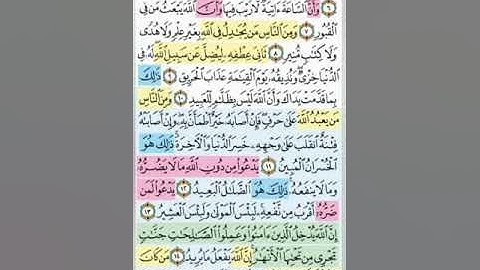 ٦ وَأَنَّ ٱلسَّاعَةَ ءَاتِيَةٌ لَّا رَيْبَ فِيهَا وَأَنَّ ٱللَّهَ يَبْعَثُ مَن فِي
ٱلْقُبُورِ ٧ وَمِنَ ٱلنَّاسِ مَن يُجَٰدِلُ فِي ٱللَّهِ بِغَيْرِ عِلْمٍ وَلَا هُدًى
وَلَا كِتَٰبٍ مُّنِيرٍ ٨ ثَانِيَ عِطْفِهِۦ لِيُضِلَّ عَن سَبِيلِ ٱللَّهِ لَهُۥ فِي
ٱلدُّنْيَا خِزْيٌ وَنُذِيقُهُۥ يَوْمَ ٱلْقِيَٰمَةِ عَذَابَ ٱلْحَرِيقِ ٩ ذَٰلِكَ
بِمَا قَدَّمَتْ يَدَاكَ وَأَنَّ ٱللَّهَ لَيْسَ بِظَلَّٰمٍ لِّلْعَبِيدِ ١٠ وَمِنَ ٱلنَّاسِ
مَن يَعْبُدُ ٱللَّهَ عَلَىٰ حَرْفٍ فَإِنْ أَصَابَهُۥ خَيْرٌ ٱطْمَأَنَّ بِهِۦ وَإِنْ أَصَابَتْهُ
فِتْنَةٌ ٱنقَلَبَ عَلَىٰ وَجْهِهِۦ خَسِرَ ٱلدُّنْيَا وَٱلْءَاخِرَةَ ذَٰلِكَ هُوَ
ٱلْخُسْرَانُ ٱلْمُبِينُ ١١ يَدْعُوا۟ مِن دُونِ ٱللَّهِ مَا لَا يَضُرُّهُۥ
وَمَا لَا يَنفَعُهُۥ ذَٰلِكَ هُوَ ٱلضَّلَٰلُ ٱلْبَعِيدُ ١٢ يَدْعُوا۟ لَمَن
ضَرُّهُۥٓ أَقْرَبُ مِن نَّفْعِهِۦ لَبِئْسَ ٱلْمَوْلَىٰ وَلَبِئْسَ ٱلْعَشِيرُ ١٣
إِنَّ ٱللَّهَ يُدْخِلُ ٱلَّذِينَ ءَامَنُوا۟ وَعَمِلُوا۟ ٱلصَّٰلِحَٰتِ جَنَّٰتٍ
تَجْرِي مِن تَحْتِهَا ٱلْأَنْهَٰرُ إِنَّ ٱللَّهَ يَفْعَلُ مَا يُرِيدُ ١٤ مَن كَانَ